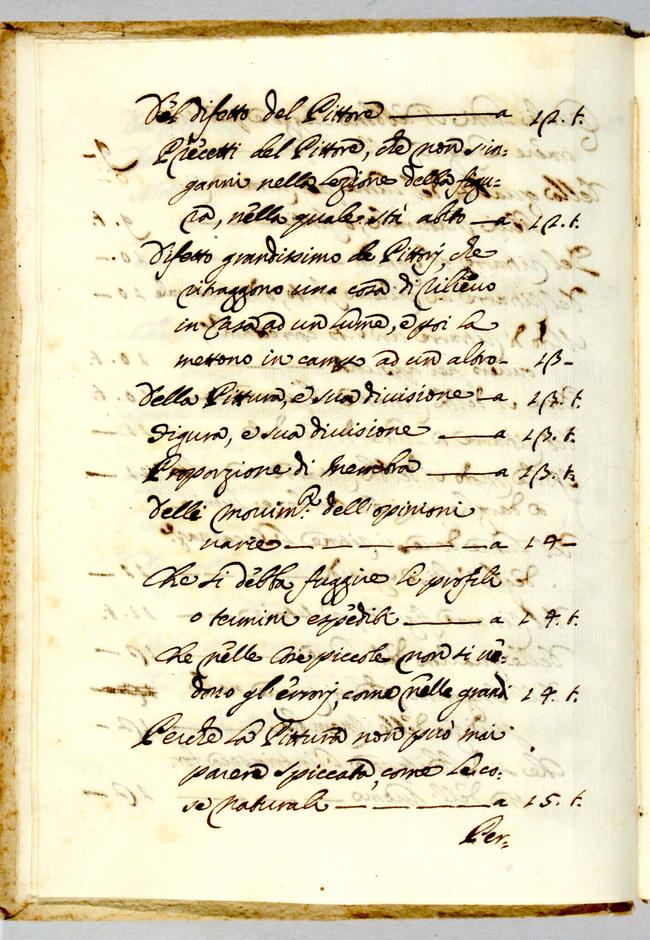 Del difetto del Pittore ——— a 12. t.
Precetti del Pittore, che non s'in-
ganni nella Lezione della figu-
ra, nella quale stà abito — a 12. t.
Difetto grandissimo de Pittorj, che
ritraggono una cosa di rilievo
in Casa ad un lume, e poi la
mettono in campo ad un altro- 13-
Della Pittura, e sua divisione — a 13. t.
Figura, e sua divisione —— a 13. t.
Proporzione di membra —— a 13. t.
Delli movim.ti dell'opinioni
varie — — — — — a 14-
Che si debba fuggire li profili
o termini espediti ——— a 14. t.
Che nelle cose piccole non si ve-
dono gl'errorj, come nelle grandi 14. t.
Perche la Pittura non può mai
parere spiccata, come le co-
se naturali — — — — a 15. t.
Per-